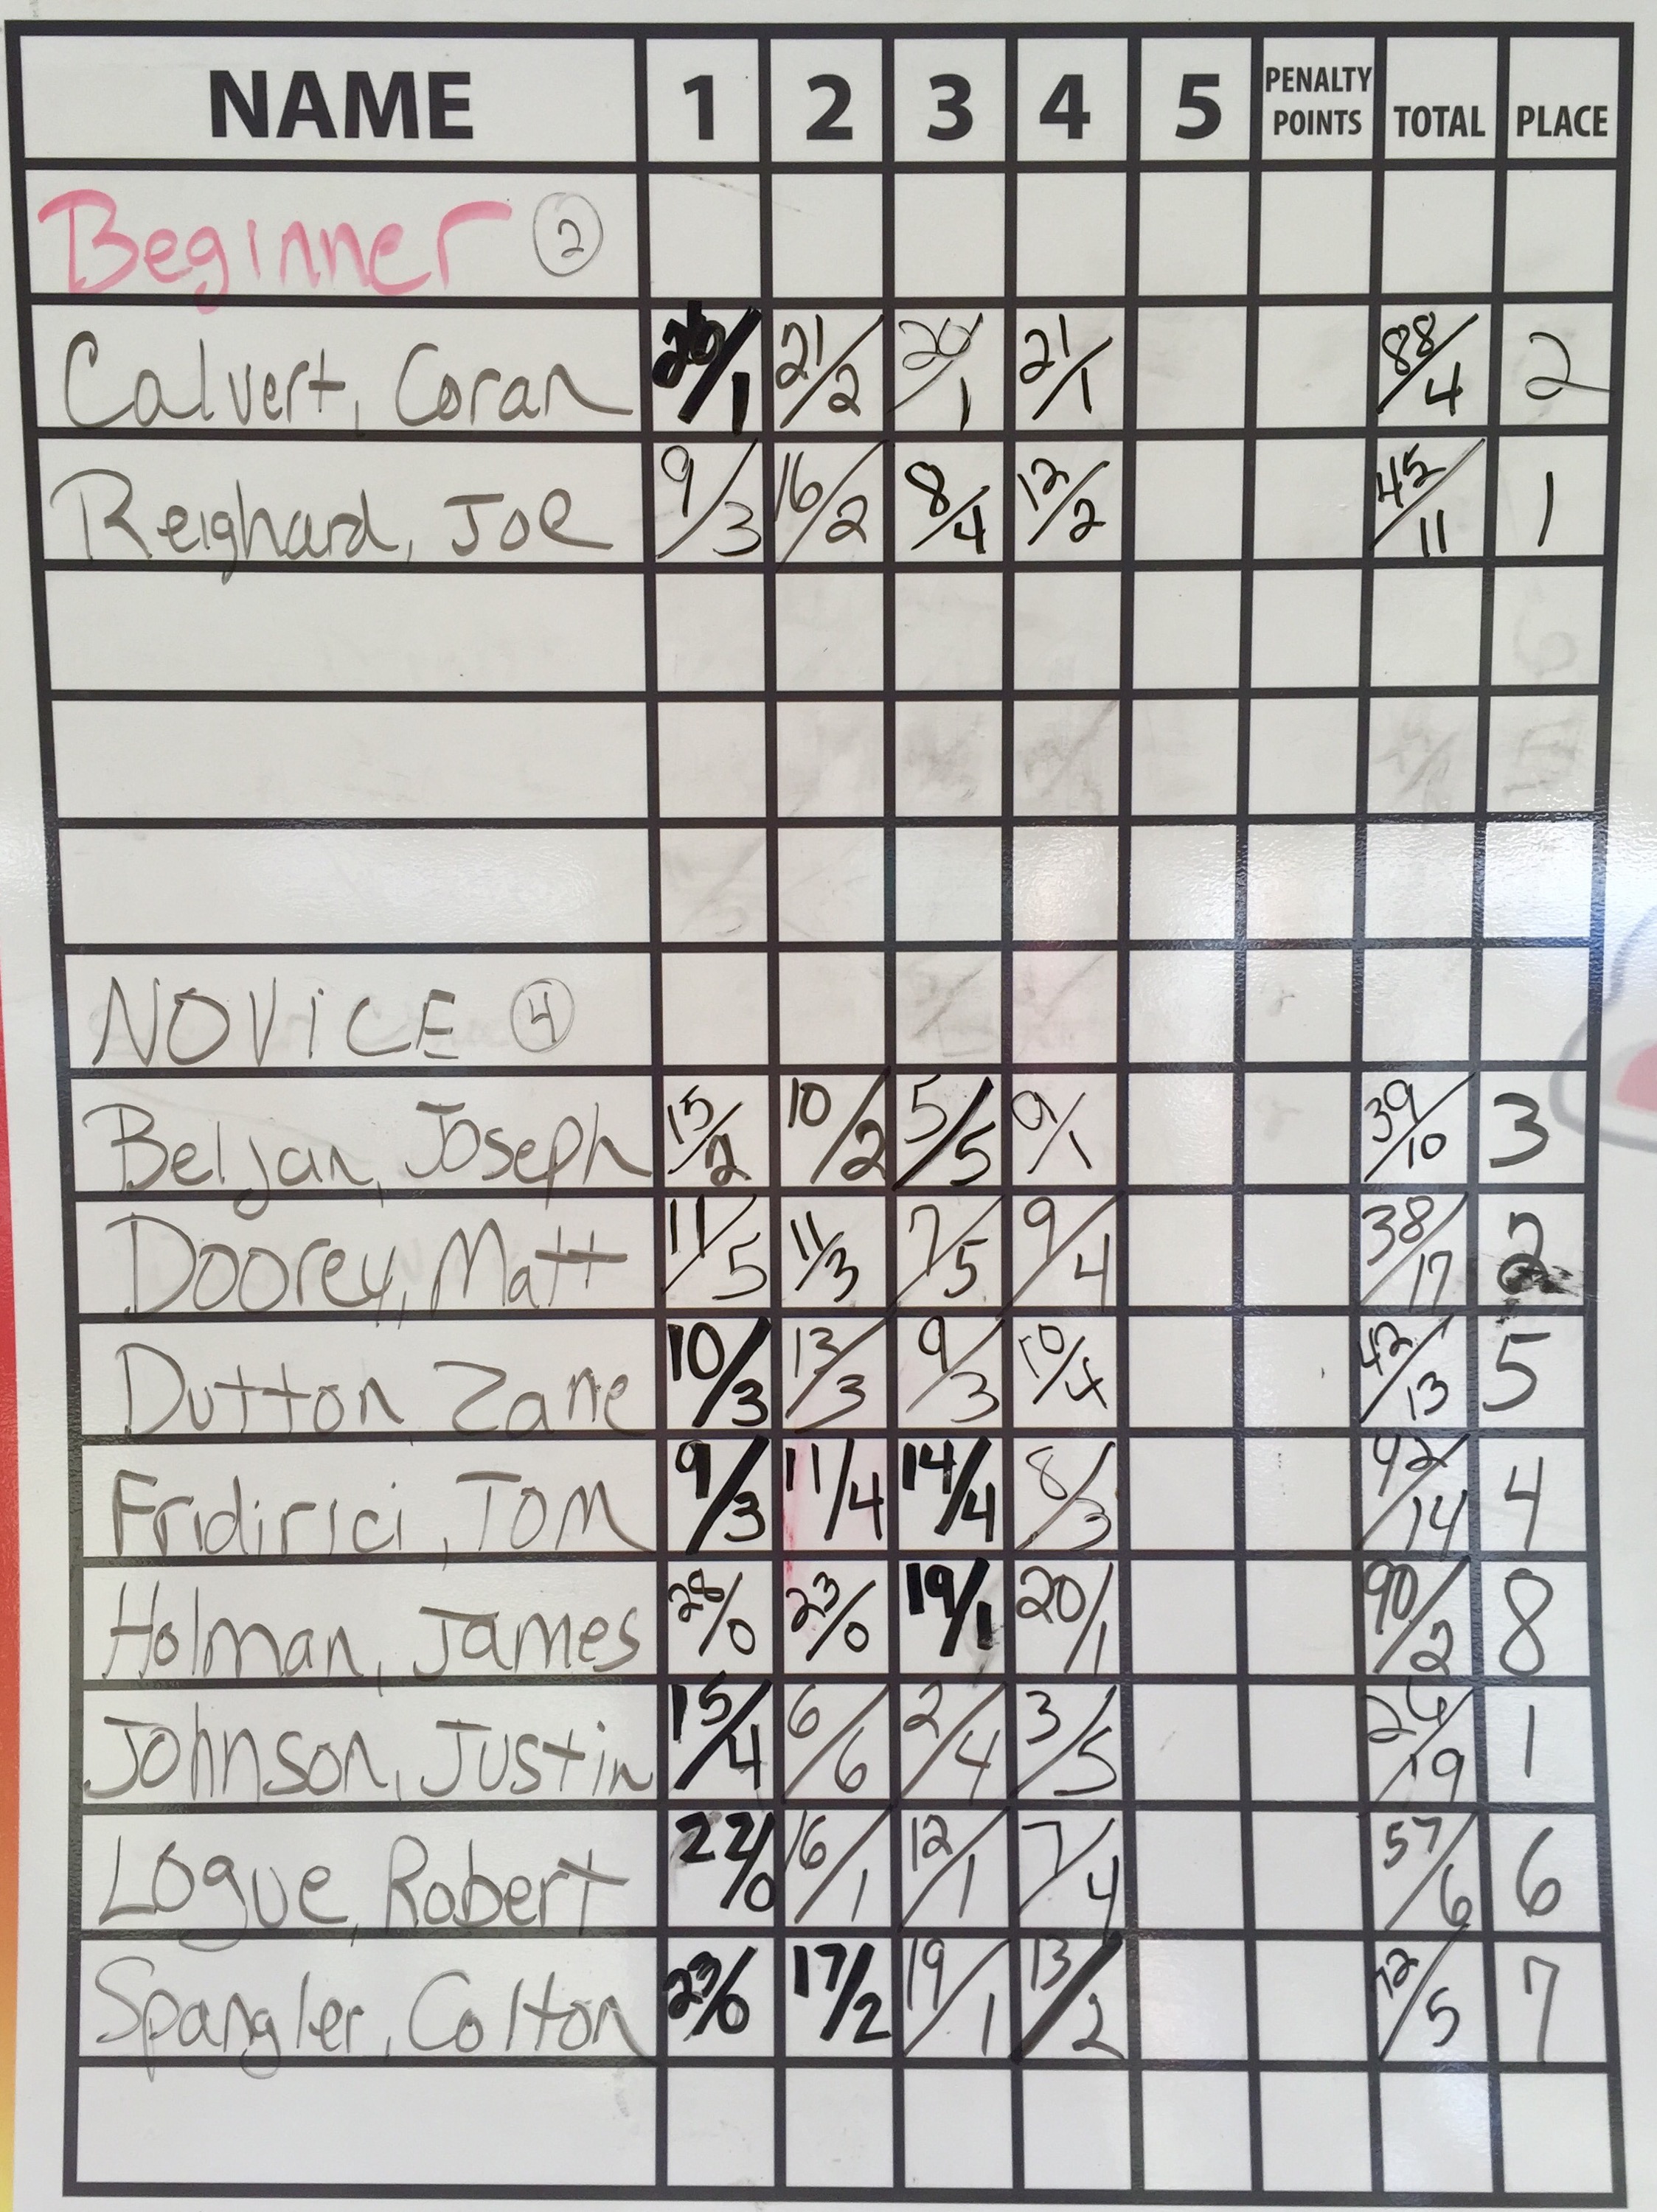 NAME 1 2 3 4 5 PENALTY POINTS TOTAL PLACE
Beginner 2
Calvert, Coran 26/1 21/2 20/1 21/1 88/4 2
Reighard, Joe 9/3 16/2 8/4 12/2 45/11 1
NOVICE 4
Beljan, Joseph 15/2 10/2 5/5 9/1 39/10 3
Doorey, Matt 11/5 11/3 7/5 9/4 38/17 2
Dutton, Zane 10/3 13/3 9/3 10/4 42/13 5
Fridirici, Tom 9/3 11/4 14/4 8/3 42/14 4
Holman, James 28/0 23/0 19/1 20/1 90/2 8
Johnson, Justin 15/4 6/6 2/4 3/5 26/19 1
Logue, Robert 22/0 16/1 12/1 7/4 57/6 6
Spangler, Colton 23/0 17/2 19/1 13/2 72/5 7